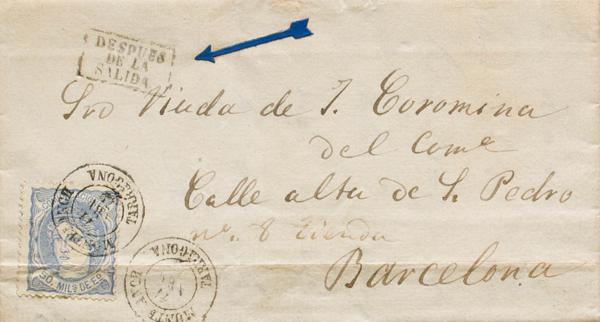 DESPUES
DE LA
SALIDA
Sra Viuda de J. Coromina
del Come
Calle alta de S. Pedro
nº. 8 tienda
Barcelona
TARRAGONA
50. MILS DE E
TARRAGONA